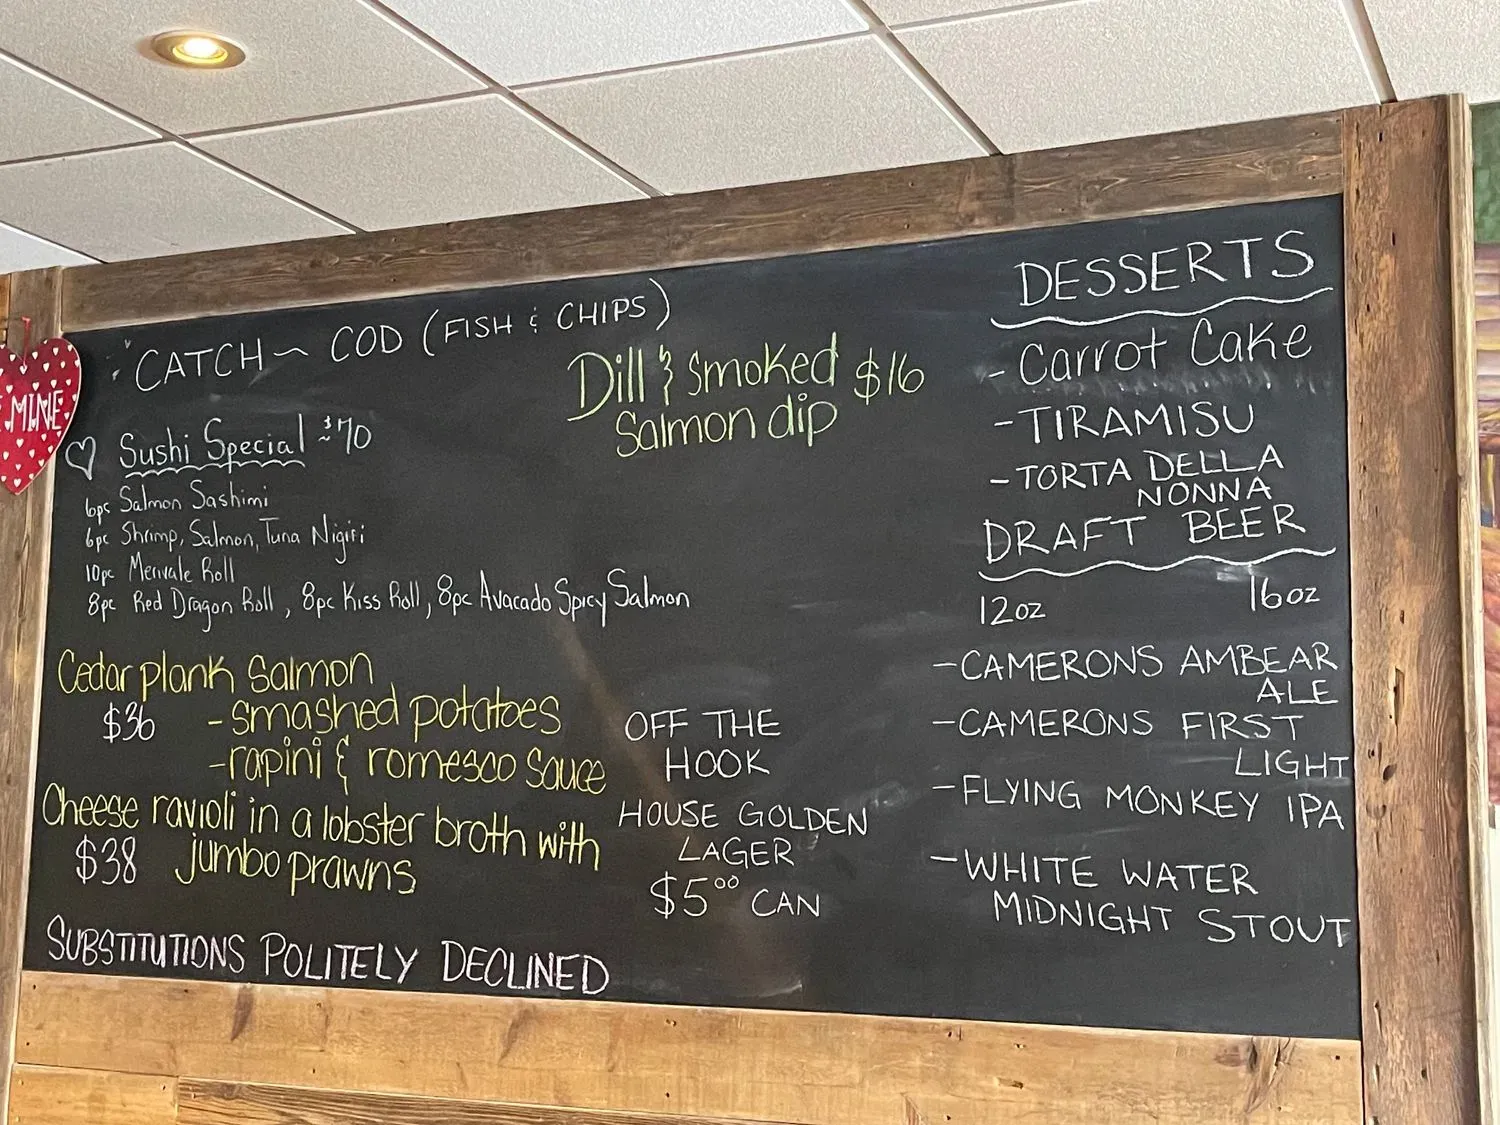 CATCH ~ COD (FISH & CHIPS)
Dill & Smoked $16
Salmon dip
MINE
Sushi Special ~$70
6pc Salmon Sashimi
6pc Shrimp, Salmon, Tuna Nigiri
10pc Merivale Roll
8pc Red Dragon Roll, 8pc Kiss Roll, 8pc Avacado Spicy Salmon
Cedar plank Salmon
$36 - smashed potatoes
- rapini & romesco Sauce
Cheese ravioli in a lobster broth with
$38 jumbo prawns
SUBSTITUTIONS POLITELY DECLINED
OFF THE
HOOK
HOUSE GOLDEN
LAGER
$5.00 CAN
DESSERTS
- Carrot Cake
- TIRAMISU
- TORTA DELLA
NONNA
DRAFT BEER
12oz 16oz
- CAMERONS AMBEAR
ALE
- CAMERONS FIRST
LIGHT
- FLYING MONKEY IPA
- WHITE WATER
MIDNIGHT STOUT